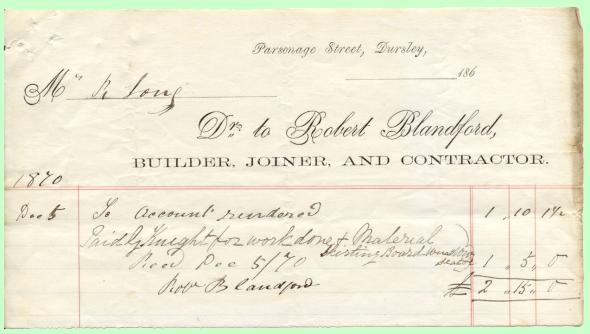 Parsonage Street, Dursley,
186
Mr R Long
Dr. to Robert Blandford,
BUILDER, JOINER, AND CONTRACTOR.
1870
Dec 5 To Account rendered 1 , 10
Paid G Knight for work done & Material
Skirting Board
Recd Dec 5/70 1 , 5 , 0
Robt Blandford £ 2 , 15 , 0